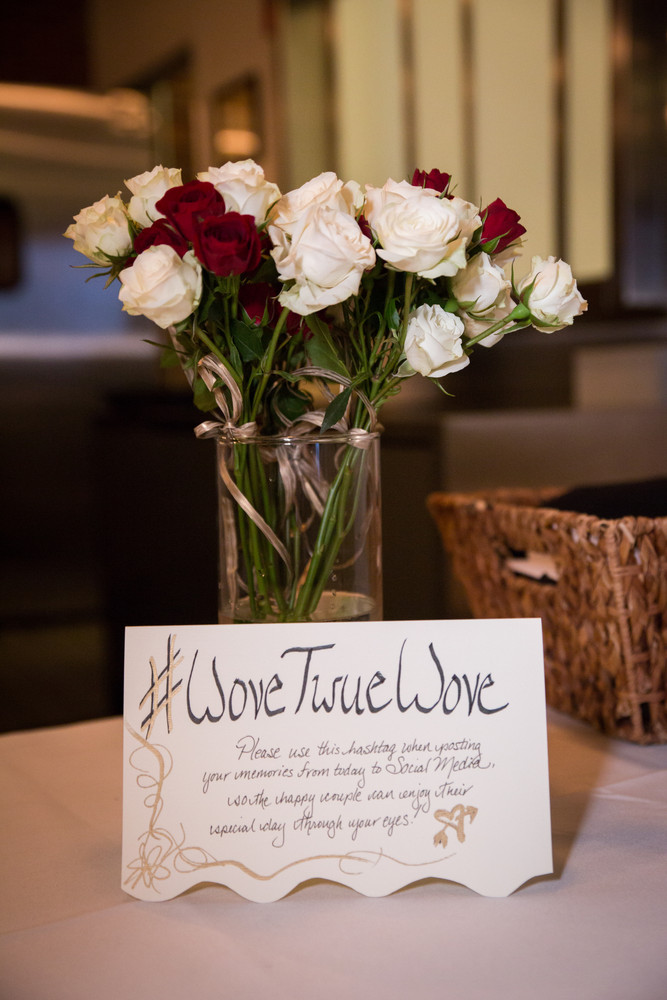 #WoveTwueWove
Please use this hashtag when posting
your memories from today to Social Media,
so the happy couple can enjoy their
special day through your eyes!